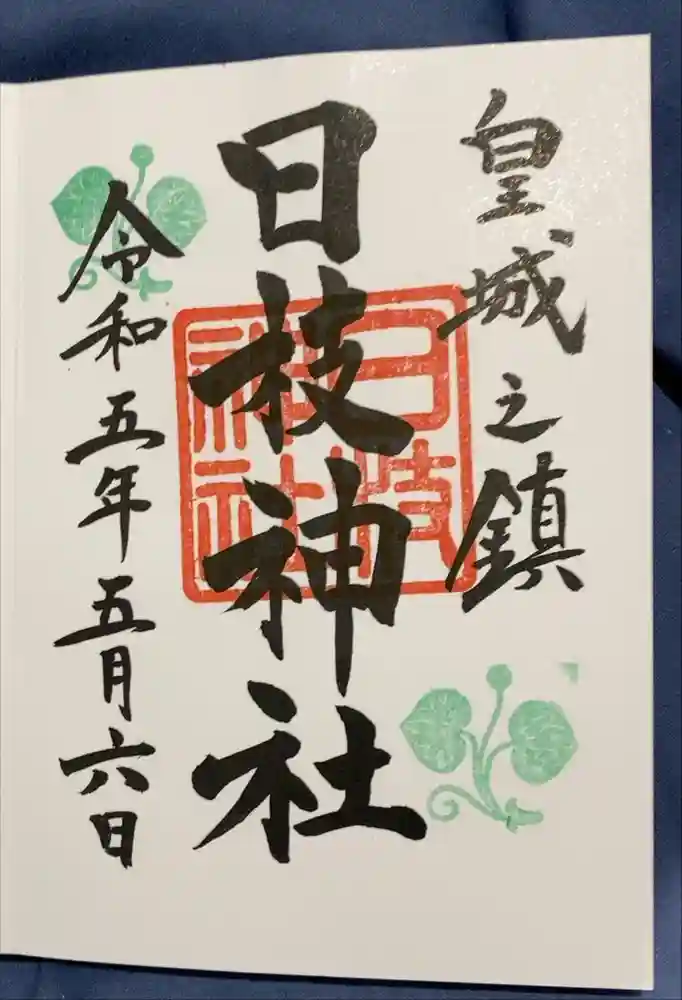 皇城之鎮
日枝神社
日枝
神社
令和五年五月六日